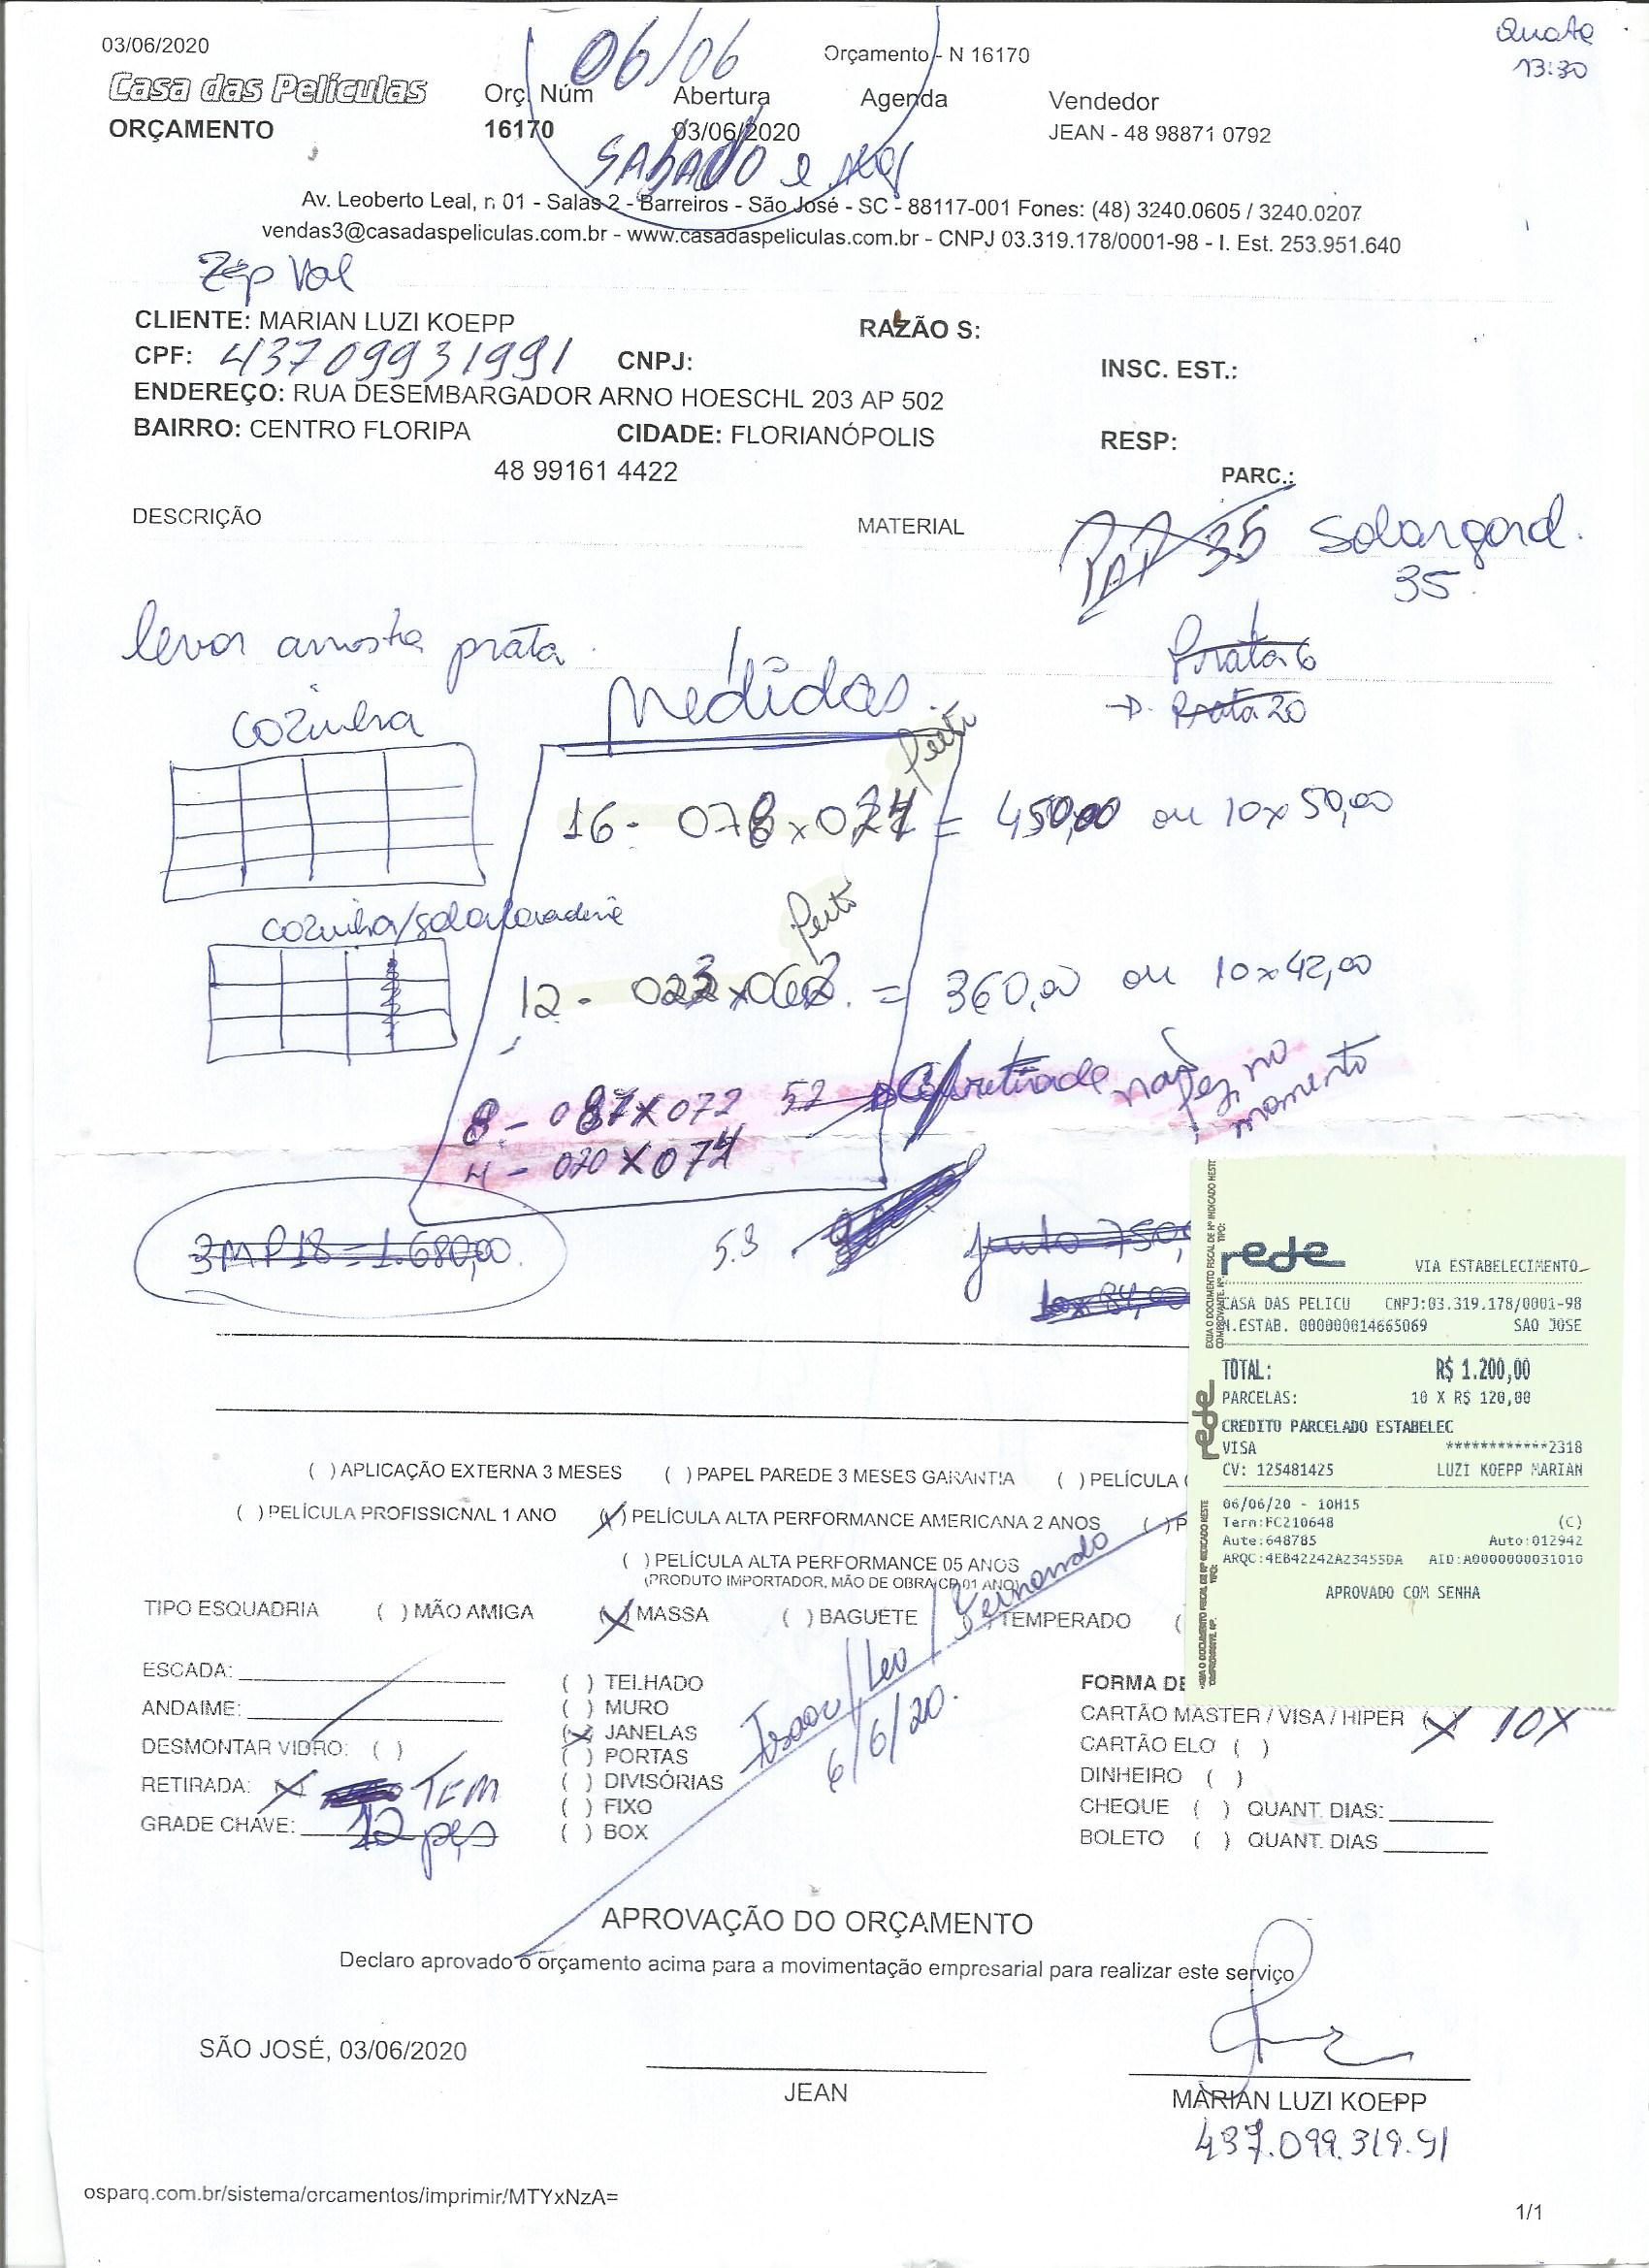 03/06/2020
Orçamento - N 16170
Quarta
13:30
Casa das Películas
ORÇAMENTO
Orç. Núm
16170
06/06
Abertura
03/06/2020
Agenda
Vendedor
JEAN - 48 98871 0792
SABADO e
Av. Leoberto Leal, n 01 - Salas 2 - Barreiros - São José - SC - 88117-001 Fones: (48) 3240.0605 / 3240.0207
vendas3@casadaspeliculas.com.br - www.casadaspeliculas.com.br - CNPJ 03.319.178/0001-98 - I. Est. 253.951.640
Zap Val
CLIENTE: MARIAN LUZI KOEPP
RAZÃO S:
CPF: 43709931991
CNPJ:
INSC. EST.:
ENDEREÇO: RUA DESEMBARGADOR ARNO HOESCHL 203 AP 502
BAIRRO: CENTRO FLORIPA
CIDADE: FLORIANÓPOLIS
RESP:
48 99161 4422
PARC.:
DESCRIÇÃO
MATERIAL
35
Solargard.
35
levar amostra prata.
Prata 6
Prata 20
cozinha
Medidas
Feito
16 - 078 x 0 = 450,00 ou 10x 50,00
cozinha/sala
Feito
12 - 023 x 0 = 360,00 ou 10x42,00
8 - 087 x 072 52 retirada não fez no momento
4 - 020 x 074
3M P18 = 1.680,00
5.3
junto 750,
10x84,00
rede
VIA ESTABELECIMENTO
CASA DAS PELICU CNPJ:03.319.178/0001-98
N.ESTAB. 000000014665069 SAO JOSE
TOTAL: R$ 1.200,00
PARCELAS: 10 X R$ 120,00
CREDITO PARCELADO ESTABELEC
VISA ************2318
CV: 125481425 LUZI KOEPP MARIAN
06/06/20 - 10H15
Term:FC210648 (C)
Aute:648785 Auto:012942
ARQC:4EB42242A23455DA AID:A0000000031010
APROVADO COM SENHA
rede
( ) APLICAÇÃO EXTERNA 3 MESES ( ) PAPEL PAREDE 3 MESES GARANTIA ( ) PELÍCULA
( ) PELÍCULA PROFISSIONAL 1 ANO (X) PELÍCULA ALTA PERFORMANCE AMERICANA 2 ANOS ( ) P
( ) PELÍCULA ALTA PERFORMANCE 05 ANOS
(PRODUTO IMPORTADOR, MÃO DE OBRA CP 01 ANO)
TIPO ESQUADRIA ( ) MÃO AMIGA (X) MASSA ( ) BAGUETE ( ) TEMPERADO (
Isaac / Leo / Fernando
6/6/20.
ESCADA:
ANDAIME:
DESMONTAR VIDRO: ( )
RETIRADA: X TEM
GRADE CHAVE: 12 pçs
( ) TELHADO
( ) MURO
(X) JANELAS
( ) PORTAS
( ) DIVISÓRIAS
( ) FIXO
( ) BOX
FORMA DE
CARTÃO MASTER / VISA / HIPER (X) 10X
CARTÃO ELO ( )
DINHEIRO ( )
CHEQUE ( ) QUANT. DIAS:
BOLETO ( ) QUANT. DIAS
APROVAÇÃO DO ORÇAMENTO
Declaro aprovado o orçamento acima para a movimentação empresarial para realizar este serviço
SÃO JOSÉ, 03/06/2020
JEAN
MARIAN LUZI KOEPP
437.099.319.91
osparq.com.br/sistema/orcamentos/imprimir/MTYxNzA=
1/1